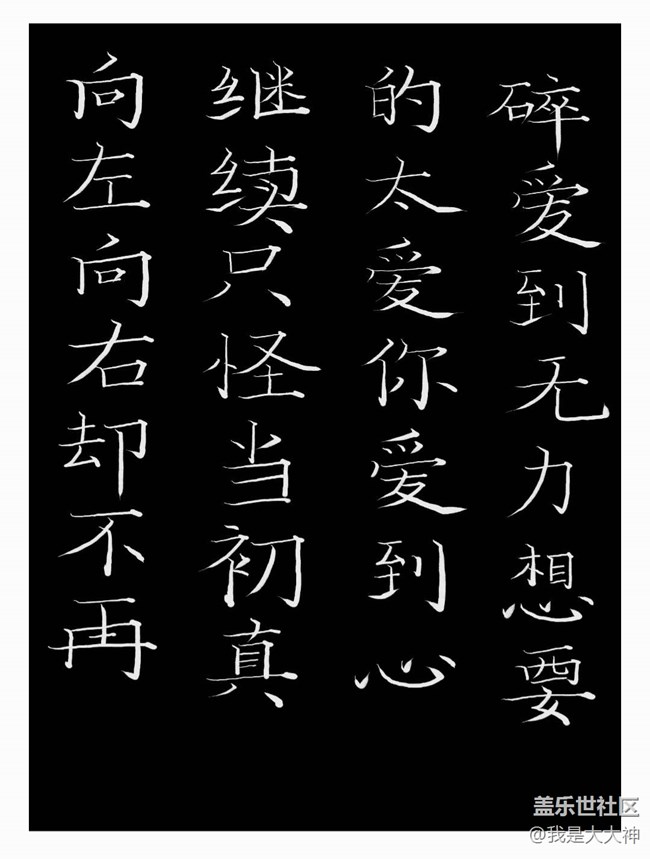 向左向右却不再
继续只怪当初真
的太爱你爱到心
碎爱到无力想要
盖乐世社区
@我是大大神